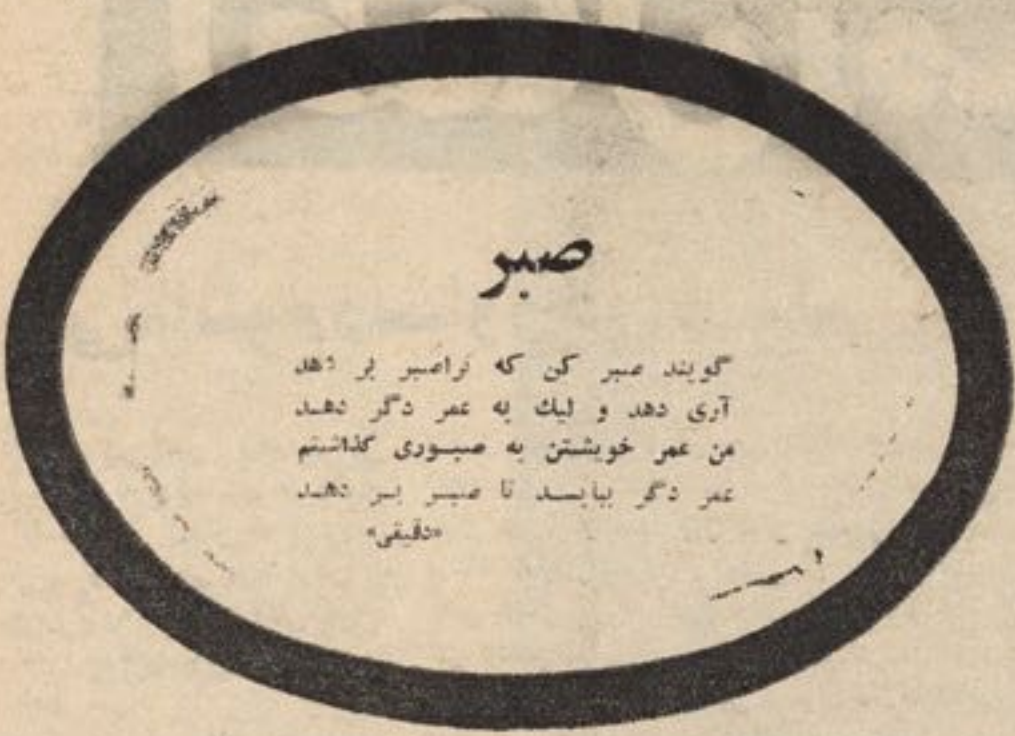 صبر
گویند صبر کن که تراصبر بر دهد
آری دهد و لیك به عمر دگر دهـد
من عمر خویشتن به صبـوری گذاشتم
عمر دگر ببایـسـد تا صبـر بـر دهـد
«دقیقی»